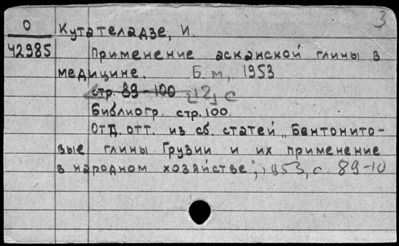 3
О Кутателадзе, И.
42985 Применение асканской глины в
медицине. Б м, 1953
стр. 89-100 [12] с
Библиогр. стр.100.
Отд. отт. из сб. статей „Бентонито-
вые глины Грузии и их применение
в народном хозяйстве", 1953, с. 89-10